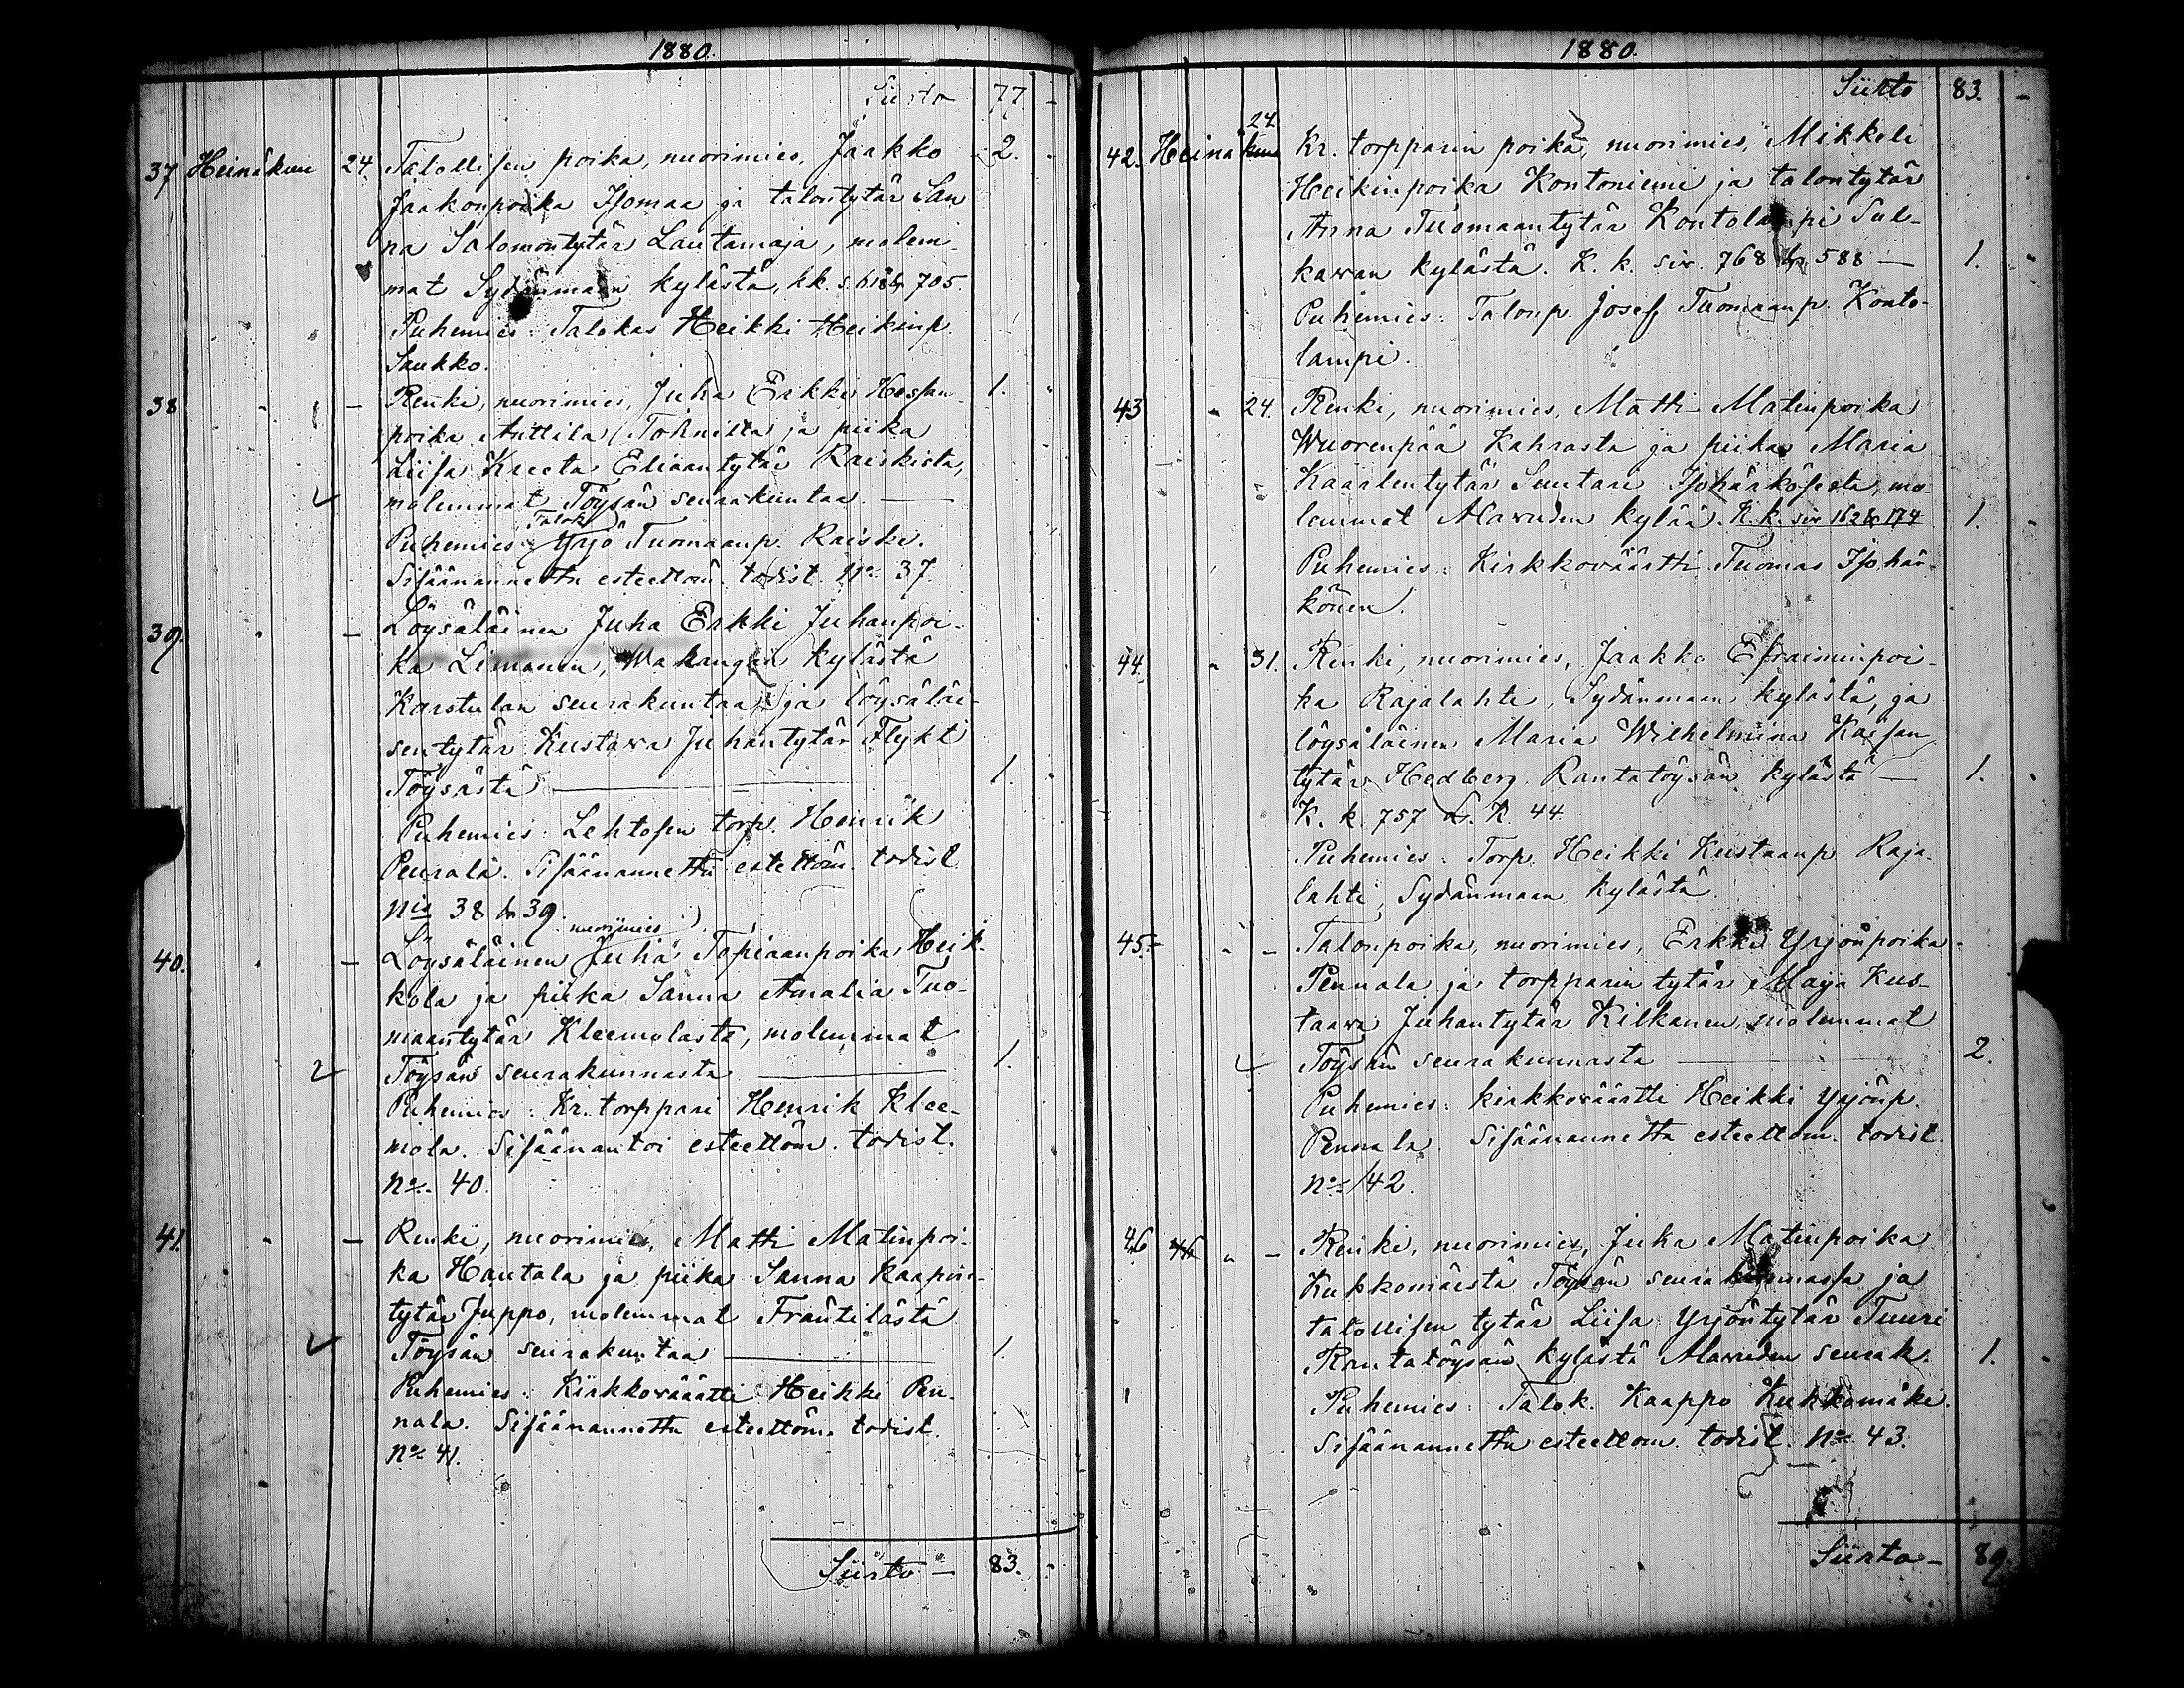 1880.
Siirto 77 -
37 Heinäkuu 24. Talollisen poika, nuorimies, Jaakko 2.
Jaakonpoika Isomaa ja talontytär San
na Salomontytär Lautamaja, molem-
mat Sydänmaan kylästä, kk. s. & 705.
Puhemies: Talokas Heikki Heikinp.
Saukko.
38 " - Renki, nuorimies, Juha Erkki Hessan- 1.
poika Anttila Tohnilta ja piika
Liisa Kreeta Eliaantytär Raiskista,
molemmat Töysän seurakuntaa
Talok.
Puhemies: Yrjö Tuomaanp. Raiski.
Sisäänannettu esteettöm. todist. No 37.
39. " - Löysäläinen Juha Erkki Juhanpoi-
ka Limanen, Wahangan kylästä
Karstulan seurakuntaa, ja löysäläi-
sentytär Kustawa Juhantytär Flykt
Töysästä 1.
Puhemies: Lehtosen torp. Henrik
Peurala. Sisäänannettu esteettöm. todist.
Nis 38 & 39.
nuorimies
40. " - Löysäläinen Juha Topiaanpoika Heik-
kola ja piika Sanna Amalia Tuo-
maantytär Kleemolasta, molemmat
Töysän seurakunnasta 1.
Puhemies: Kr. torppari Henrik Klee-
mola. Sisäänantoi esteettöm. todist.
No 40.
41. " - Renki, nuorimies, Matti Matinpoi-
ka Hautala ja piika Sanna Kaapon-
tytär Juppo, molemmat Frantilästä
Töysän seurakuntaa 1.
Puhemies: Kirkkowäärtti Heikki Pen-
nala. Sisäänannettu esteettöm. todist.
No 41.
Siirto - 83. -
1880.
Siirto 83. -
24.
42. Heinäkuu Kr. torpparin poika, nuorimies, Mikkeli
Heikinpoika Kontoniemi ja talontytär
Anna Tuomaantytär Kontolampi Sul-
kawan kylästä. K. k. siv. 768 & 588 - 1.
Puhemies: Talonp. Josef Tuomaanp. Konto-
lampi.
43 " 24. Renki, nuorimies, Matti Matinpoika
Wuorenpää Kahrasta ja piika Maria
Kaarlentytär Suutari Isohärkösestä, mo-
lemmat Alawuden kylää. K. k. siv 162 & 174 1.
Puhemies: Kirkkowäärtti Tuomas Isohär-
könen.
44. " 31. Renki, nuorimies, Jaakko Efraiminpoi-
ka Rajalahti, Sydänmaan kylästä, ja
löysäläinen Maria Wilhelmiina Kaisan
tytär Hedberg Rantatöysän kylästä - 1.
K. k. 757 L. K. 44
Puhemies: Torp. Heikki Kustaanp. Raja-
lahti, Sydänmaan kylästä.
45. " - Talonpoika, nuorimies, Erkki Yrjönpoika
Pennala ja torpparin tytär Maija Kus-
taawa Juhantytär Kilkanen, molemmat
Töysän seurakunnasta 2.
Puhemies: kirkkowäärtti Heikki Yrjönp.
Pennala. Sisäänannettu esteettöm. todist.
No 42.
46 46 " - Renki, nuorimies, Juha Matinpoika
Kukkomäestä Töysän seurakunnassa ja
talollisen tytär Liisa Yrjöntytär Tuuri
Rantatöysän kylästä Alawuden seurak. 1.
Puhemies: Talok. Kaappo Kukkomäki.
Sisäänannettu esteettöm. todist. No 43.
Siirto - 89.